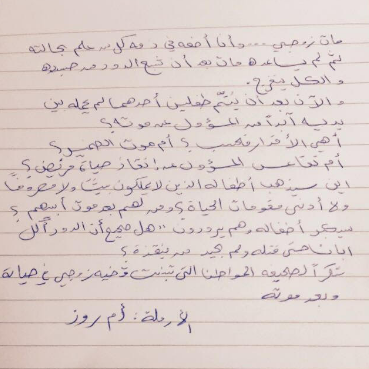 مات زوجي .... وأنا أضعه في ذمة كل من علم بحالته
ثم لم يساعده مات بعد أن نهش الدود من جسده
والكل يتفرج.
والآن بعد أن يُتّم طفلين أحدهما لم يحمله بين
يديه أبداً من المسؤول عن موته؟
أهي الأقدار فحسب؟ أم موت الضمير؟
أم تقاعس المسؤول عن إنقاذ حياة مريض؟
اين سيذهب أطفاله الذين لا يملكون بيت ولا مصروفاً
ولا أدنى مقومات الحياة؟ ومن لهم بعد موت أبيهم؟
سيكبر أطفاله وهم يرددون .. هل صحيح أن الدود أكل
أبانا حتى قتله ولم يجد من ينقذه؟
شكراً لصحيفة المواطن التي تبنت قضية زوجي في حياته
وبعد موته
الأرملة : أم روز